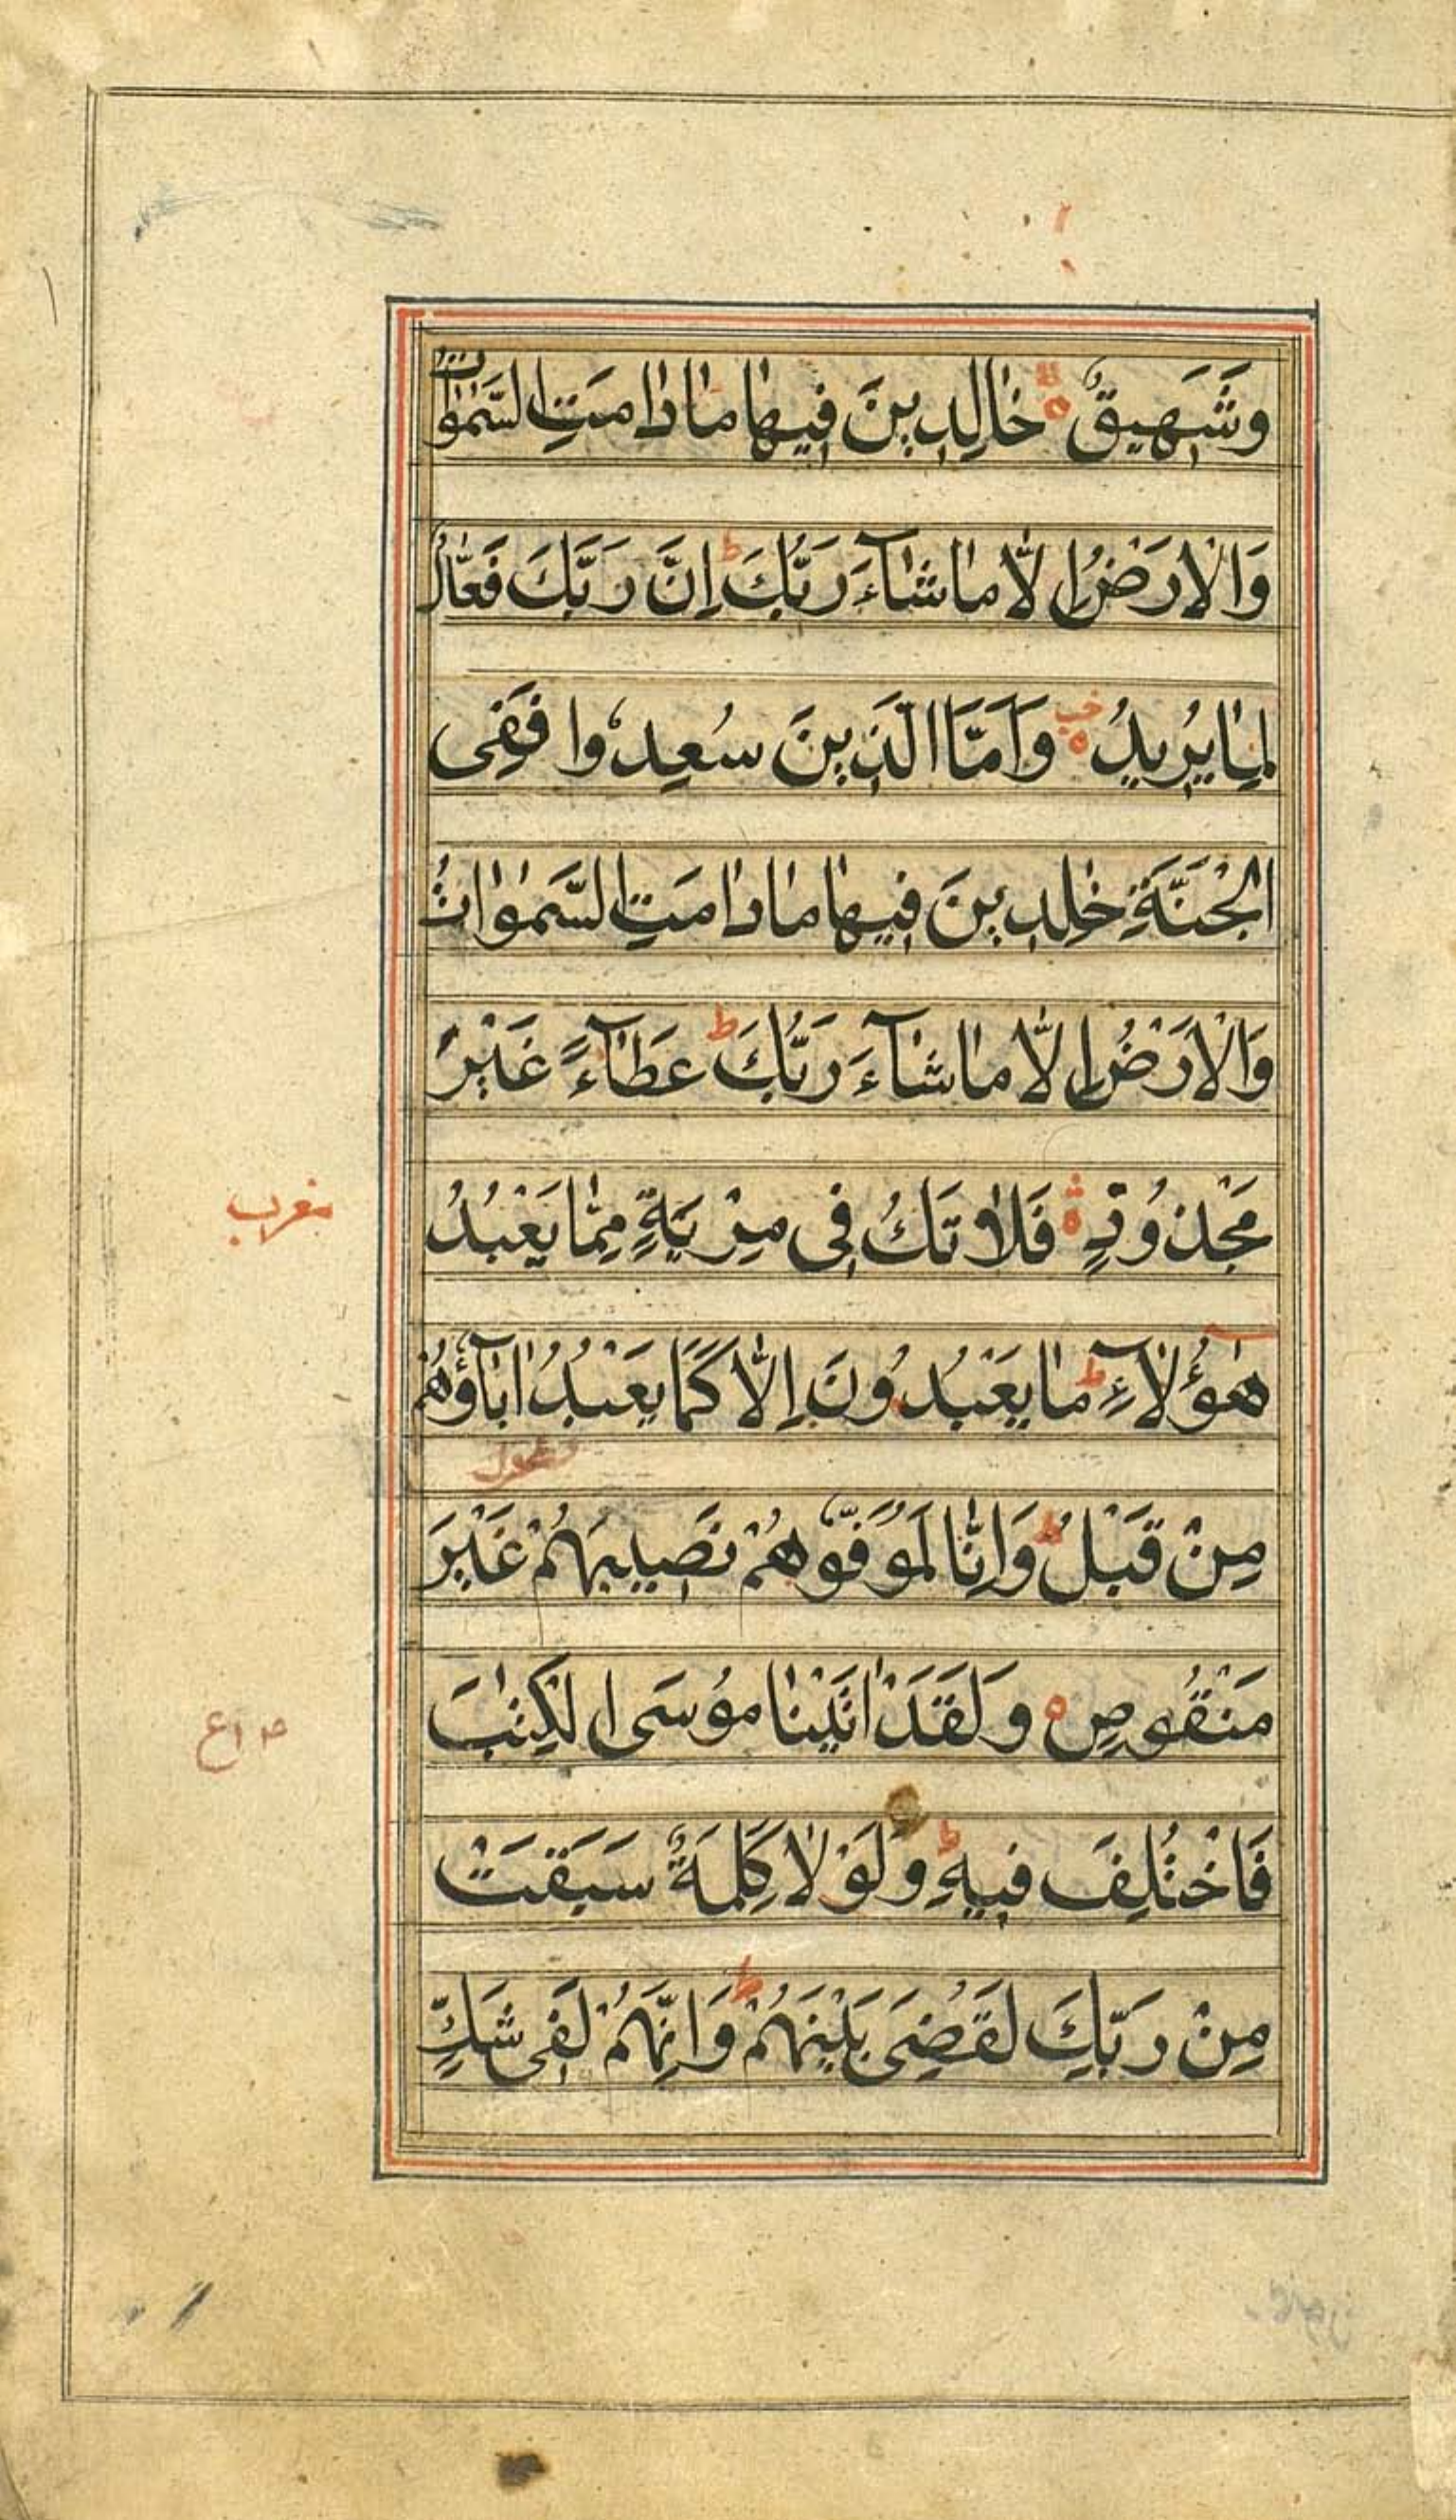 وَشَهِيقٌ ۝ خَالِدِينَ فِيهَا مَا دَامَتِ السَّمٰوَاتُ
وَالْاَرْضُ اِلَّا مَا شَآءَ رَبُّكَ ط اِنَّ رَبَّكَ فَعَّالٌ
لِمَا يُرِيدُ ۝ وَاَمَّا الَّذِينَ سُعِدُوا فَفِى
الْجَنَّةِ خٰلِدِينَ فِيهَا مَا دَامَتِ السَّمٰوَاتُ
وَالْاَرْضُ اِلَّا مَا شَآءَ رَبُّكَ ط عَطَآءً غَيْرَ
مغرب
مَجْذُوذٍ ۝ فَلَا تَكُ فِى مِرْيَةٍ مِمَّا يَعْبُدُ
هٰؤُلَآءِ ط مَا يَعْبُدُونَ اِلَّا كَمَا يَعْبُدُ اٰبَآؤُهُمْ
مِنْ قَبْلُ ط وَاِنَّا لَمُوَفُّوهُمْ نَصِيبَهُمْ غَيْرَ
مَنْقُوصٍ ۝ وَلَقَدْ اٰتَيْنَا مُوسَى الْكِتٰبَ
فَاخْتُلِفَ فِيهِ ط وَلَوْلَا كَلِمَةٌ سَبَقَتْ
مِنْ رَبِّكَ لَقُضِىَ بَيْنَهُمْ ط وَاِنَّهُمْ لَفِى شَكٍّ